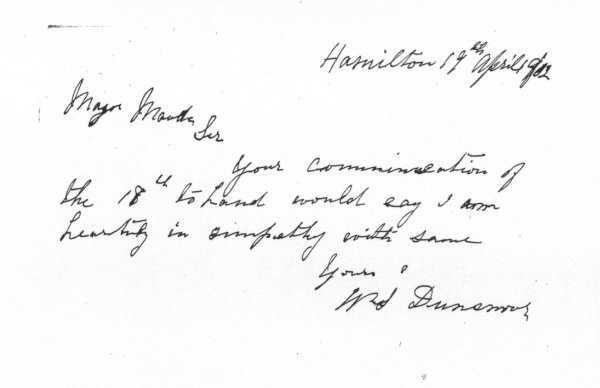 Hamilton 19th April 1902
Major
Sir
Your communication of
the 18th to hand would say I am
heartily in simpathy with same
Yours
Dunsmor